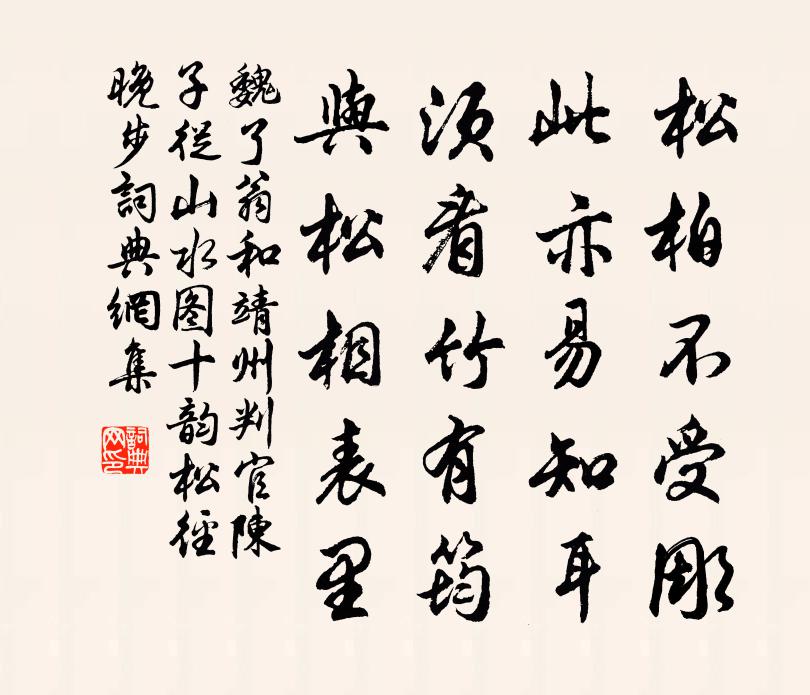 松柏不受彫
此亦易知耳
須看竹有筠
與松相表里
魏了翁和靖州判官陳
子從山水图十韵松徑
晚步詞典網集
詞典
网印